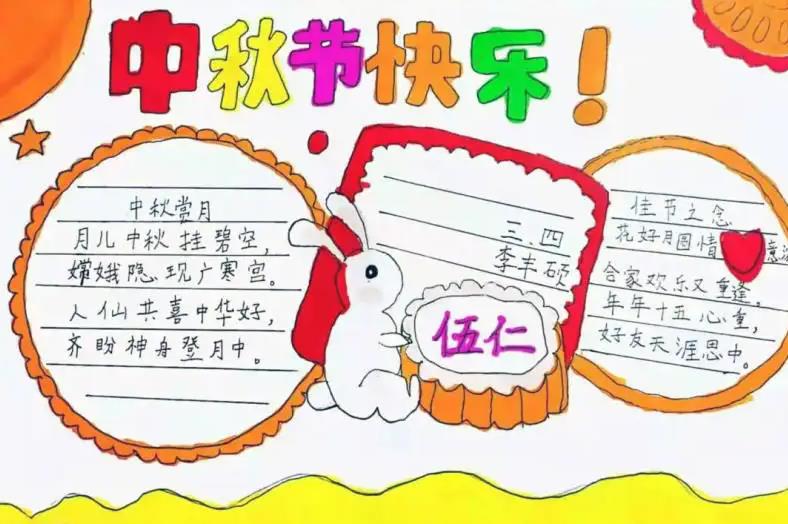 中秋节快乐!
中秋赏月
月儿中秋挂碧空,
嫦娥隐现广寒宫。
人仙共喜中华好,
齐盼神舟登月中。
三、四
李丰硕
伍仁
佳节之念
花好月圆情意
合家欢乐又重逢。
年年十五心重,
好友天涯思中。